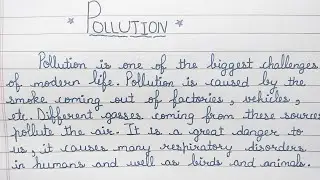 * POLLUTION *
Pollution is one of the biggest challenges
of modern life. Pollution is caused by the
smoke coming out of factories, vehicles,
etc. Different gasses coming from these sources
pollute the air. It is a great danger to
us, it causes many respiratory disorders
in humans and well as birds and animals.